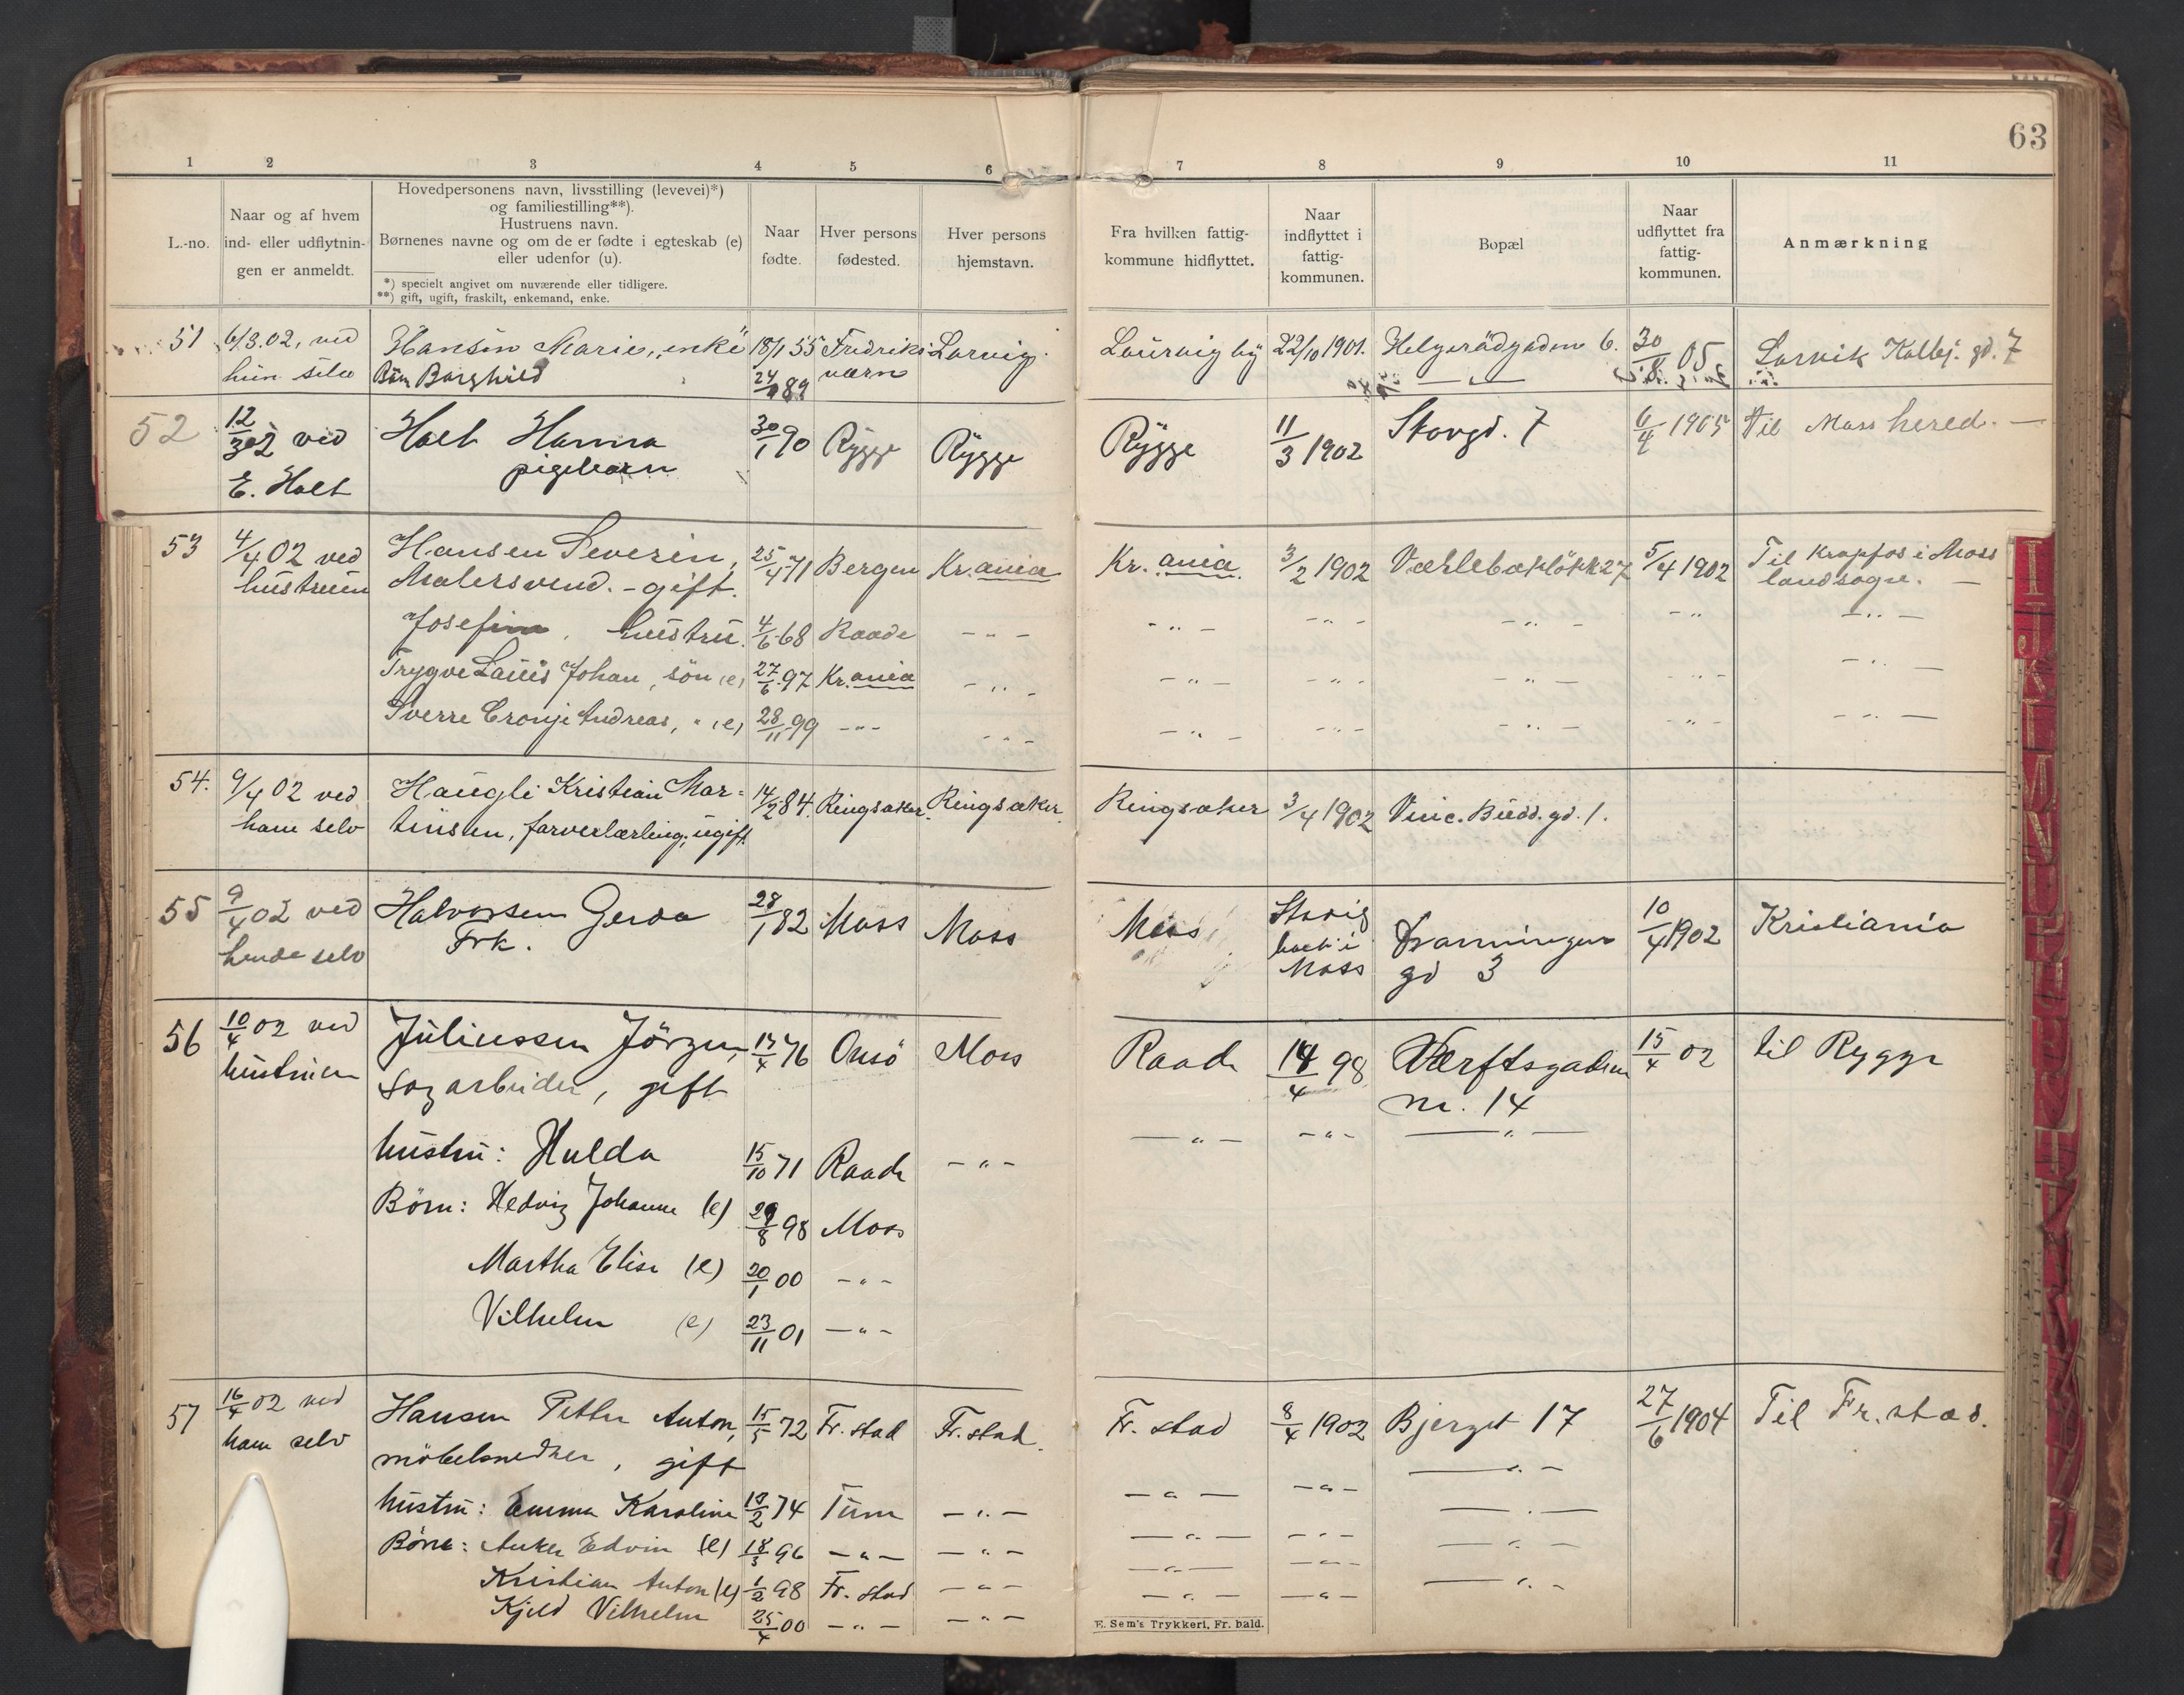 63
1 2 3 4 5 6 7 8 9 10 11
L.-no.
Naar og af hvem
ind- eller udflytnin-
gen er anmeldt.
Hovedpersonens navn, livsstilling (levevei)*)
og familiestilling**).
Hustruens navn.
Børnenes navne og om de er fødte i egteskab (e)
eller udenfor (u).
*) specielt angivet om nuværende eller tidligere.
**) gift, ugift, fraskilt, enkemand, enke.
Naar
fødte.
Hver persons
fødested.
Hver persons
hjemstavn.
Fra hvilken fattig-
kommune hidflyttet.
Naar
indflyttet i
fattig-
kommunen.
Bopæl
Naar
udflyttet fra
fattig-
kommunen.
Anmærkning
51 6/3.02, ved Hansen Marie, enke 18/1 55 Fredriks Larvig. Laurvig by 22/10 1901. Helgerödgaden 6. 30/8 05 Larvik Kolbj. gd. 7
hun selv Barn Borghild 24/9 89 værn — " —
52 12/3 02 ved Holt Hanna 30/1 90 Rygge Rygge Rygge 11/3 1902 Storgd. 7 6/4 1905 Til Moss hered. —
E. Holt pigebarn
53 4/4 02 ved Hansen Severin, 25/4 71 Bergen Kr.ania Kr.ania. 3/2 1902 Værlebakløkk 27 5/4 1902 Til Krapfos i Moss
hustruen Malersvend. - gift. landsogn. —
Josefina, hustru. 4/6 68 Raade - " - - " - - " - - " - - " - — " —
Trygve Lauis Johan, sön (e) 27/6 97 Kr.ania - " - - " - - " - - " - - " - — " —
Sverre Cronje Andreas, " (e) 28/11 99 - " - - " - - " - - " - - " - - " - — " —
54. 9/4 02 ved Haugli Kristian Mar= 14/2 84. Ringsaker. Ringsaker. Ringsaker 3/4 1902 Vinc. Budd. gd. 1.
ham selv tinsen, farverlærling, ugift
55 9/4 02 ved Halvorsen Gerda 28/1 82 Moss Moss Moss Stadig 10/4 1902 Kristiania
hende selv Frk. boet i Dronningens
Moss gd 3
56 10/4 02 ved Juliussen Jörgen, 13/4 76 Onsö Moss Raade 14/4 98 Værftsgaden 15/4 02 til Rygge
hustruen Sagarbeider, gift nr. 14
hustru: Hulda 15/10 71 Raade - " - — " — - " - — " —
Börn: Hedvig Johanne (e) 29/8 98 Moss
Martha Elise (e) 20/1 00 - " -
Vilhelm (e) 23/11 01 - " -
57 16/4 02 ved Hansen Petter Anton, 15/5 72 Fr. stad Fr. stad. Fr. stad 8/4 1902 Bjerget 17 27/6 1904 Til Fr. stad.
ham selv möbelsnedker, gift
hustru: Emma Karoline 13/2 74 Tune - " - — " — - " - — " —
Börn: Anker Edvin (e) 18/3 96 - " - - " - — " — - " - — " —
Kristian Anton (e) 1/2 98 Fr. stad - " - — " — - " - — " —
Kjeld Vilhelm 25/4 00 - " - - " - — " — - " - — " —
E. Sem's Trykkeri, Fr. hald.